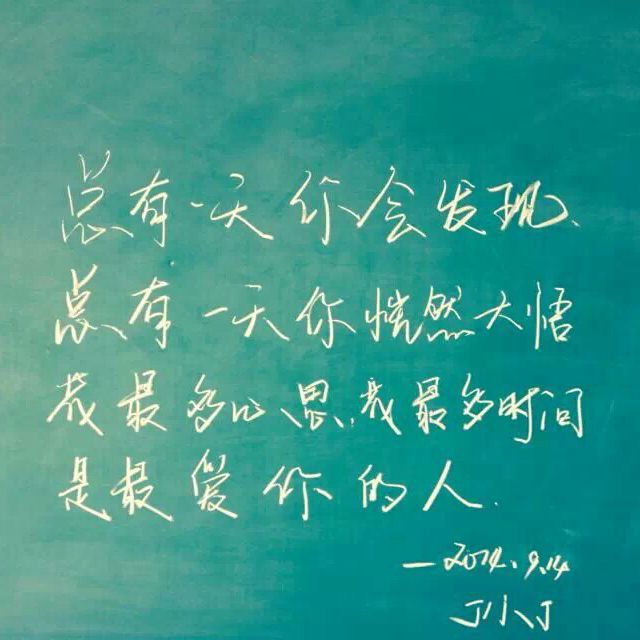 总有一天你会发现、
总有一天你恍然大悟
花最多心思,花最多时间
是最爱你的人.
—2014.9.14
丁小丁